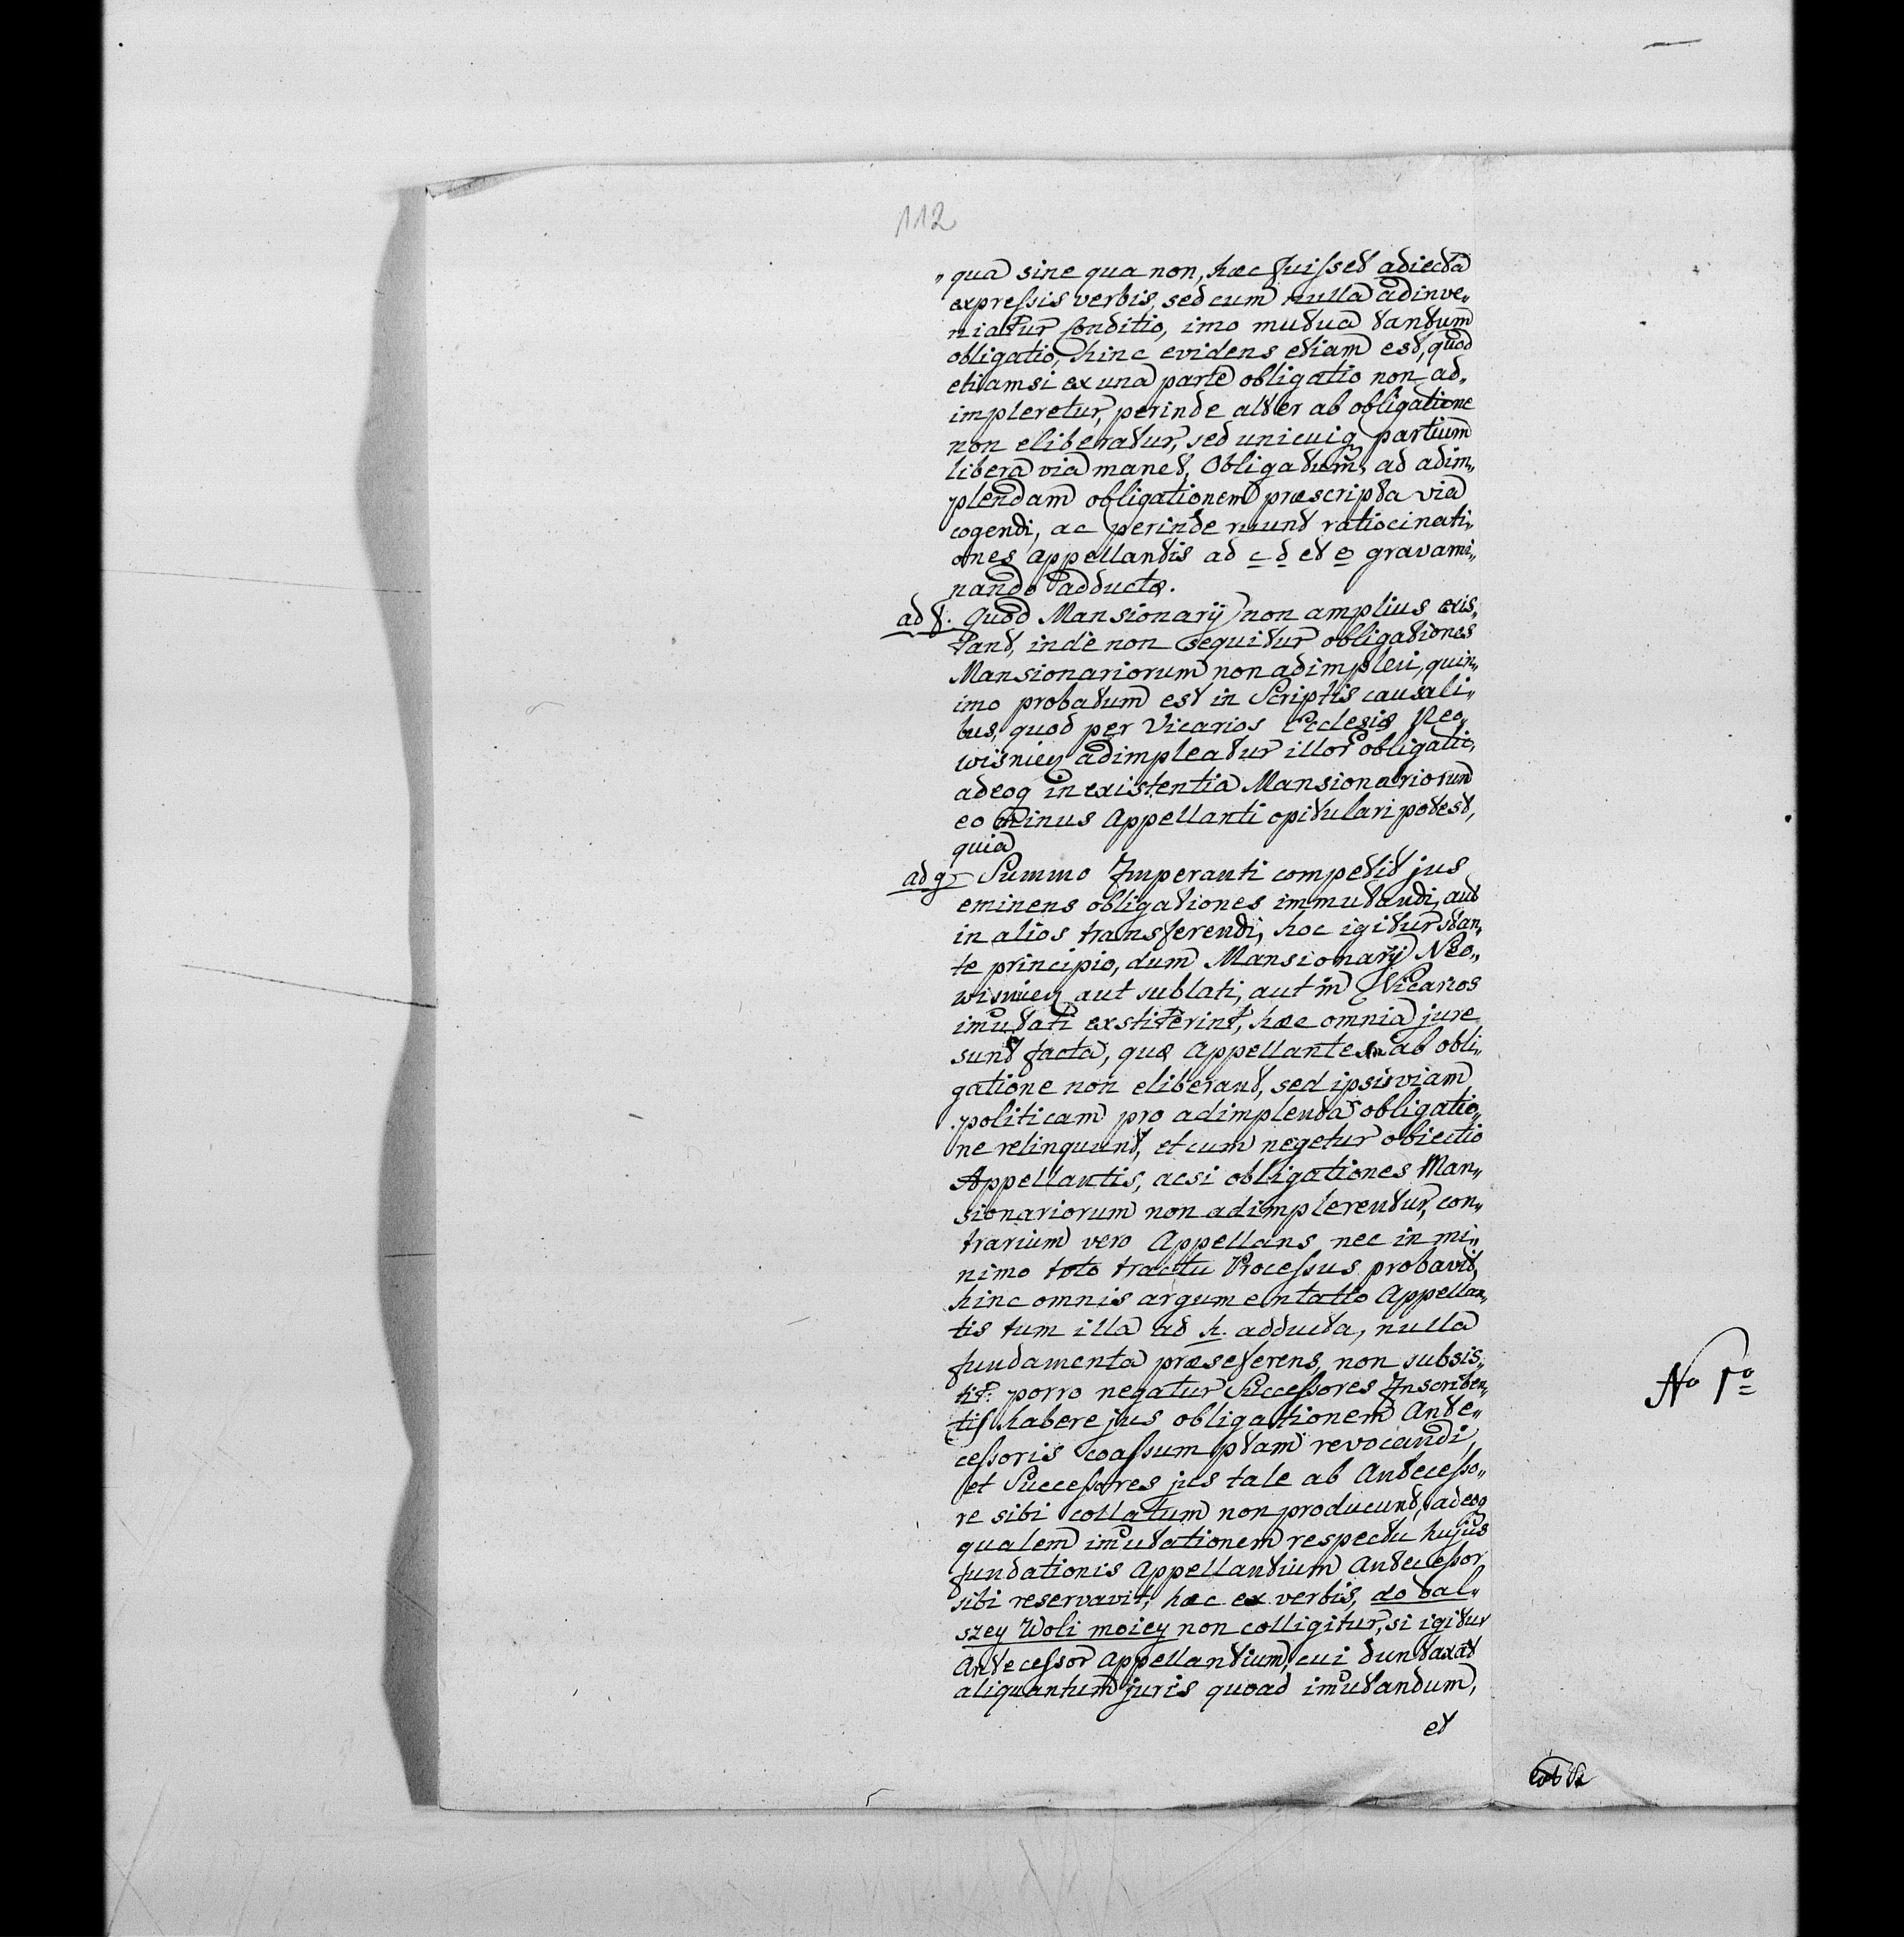 112
„qua sine qua non, hæc fuisset adiecta
expressis verbis, sed cum nulla adinve„
niatur Conditio, imo mutua tantum
obligatio, hinc evidens etiam est, quod
etiamsi ex una parte obligatio non ad„
impleretur, perinde alter ab obligatione
non eliberatur, sed unicuiq partium
libera via manet, Obligatum, ad adim„
plendam obligationem præscripta via
cogendi, ac perinde ruunt ratiocinati„
ones Appellantis ad c d et e gravami„
nando adductæ.
ad f. Quod Mansionarij non amplius exis„
tant, inde non sequitur obligationes
Mansionariorum non adimpleri, quin„
imo probatum est in Scriptis causali„
bus, quod per Vicarios Ecclesiæ Neo„
wisniey adimpleatur illor obligatio,
adeoq inexistentia Mansionariorum
eo minus Appellanti opitulari potest,
quia
ad g Summo Imperanti competit jus
eminens obligationes immutandi, aut
in alios transferendi, hoc igitur stan„
te principio, dum Mansionarij Neo„
wisniey aut sublati, aut in Vicarios
imutati exstiterint, hæc omnia jure
sunt facta, quæ Appellantem ab obli„
gatione non eliberant, sed ipsis viam
politicam pro adimplenda obligatio„
ne relinquunt, et cum negetur obiectio
Appellantis, acsi obligationes Man„
sionariorum non adimplerentur, con„
trarium vero Appellans nec in mi„
nimo toto tractu Processus probavit,
hinc omnis argumentatio Appellan„
tis tum illa ad h. adducta, nulla
fundamenta præseferens, non subsis„
tit: porro negatur Successores Inscriben„
tis habere jus obligationem Ante„
cessoris coassumptam revocandi,
et Successores jus tale ab Antecesso„
re sibi collatum non producunt, adeoq
qualem imutationem respectu hujus
fundationis Appellantium Antecessor
sibi reservavit, hæc ex verbis, do dal„
szey Woli moiey non colligitur, si igitur
Antecessor Appellantium, cui duntaxat
aliquantum juris quoad imutandum,
et
No 1o